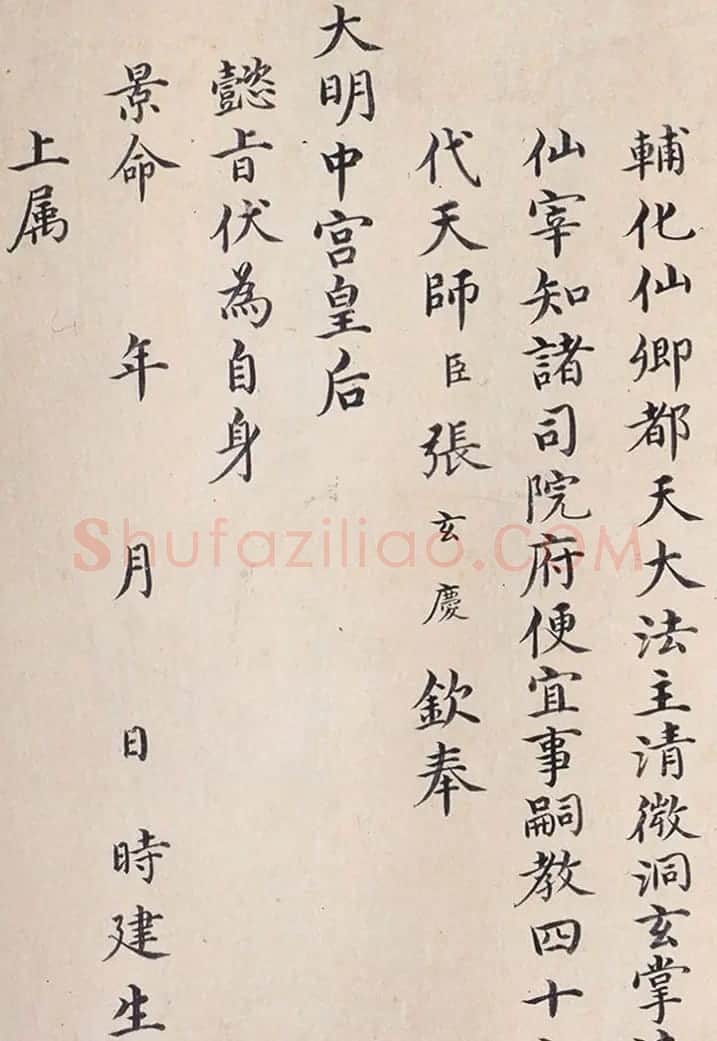 輔化仙卿都天大法主清微洞玄掌
仙宰知諸司院府便宜事嗣教四十
代天師臣張玄慶欽奉
大明中宮皇后
懿旨伏為自身
景命 年 月 日時建生
上属
Shufaziliao.COM